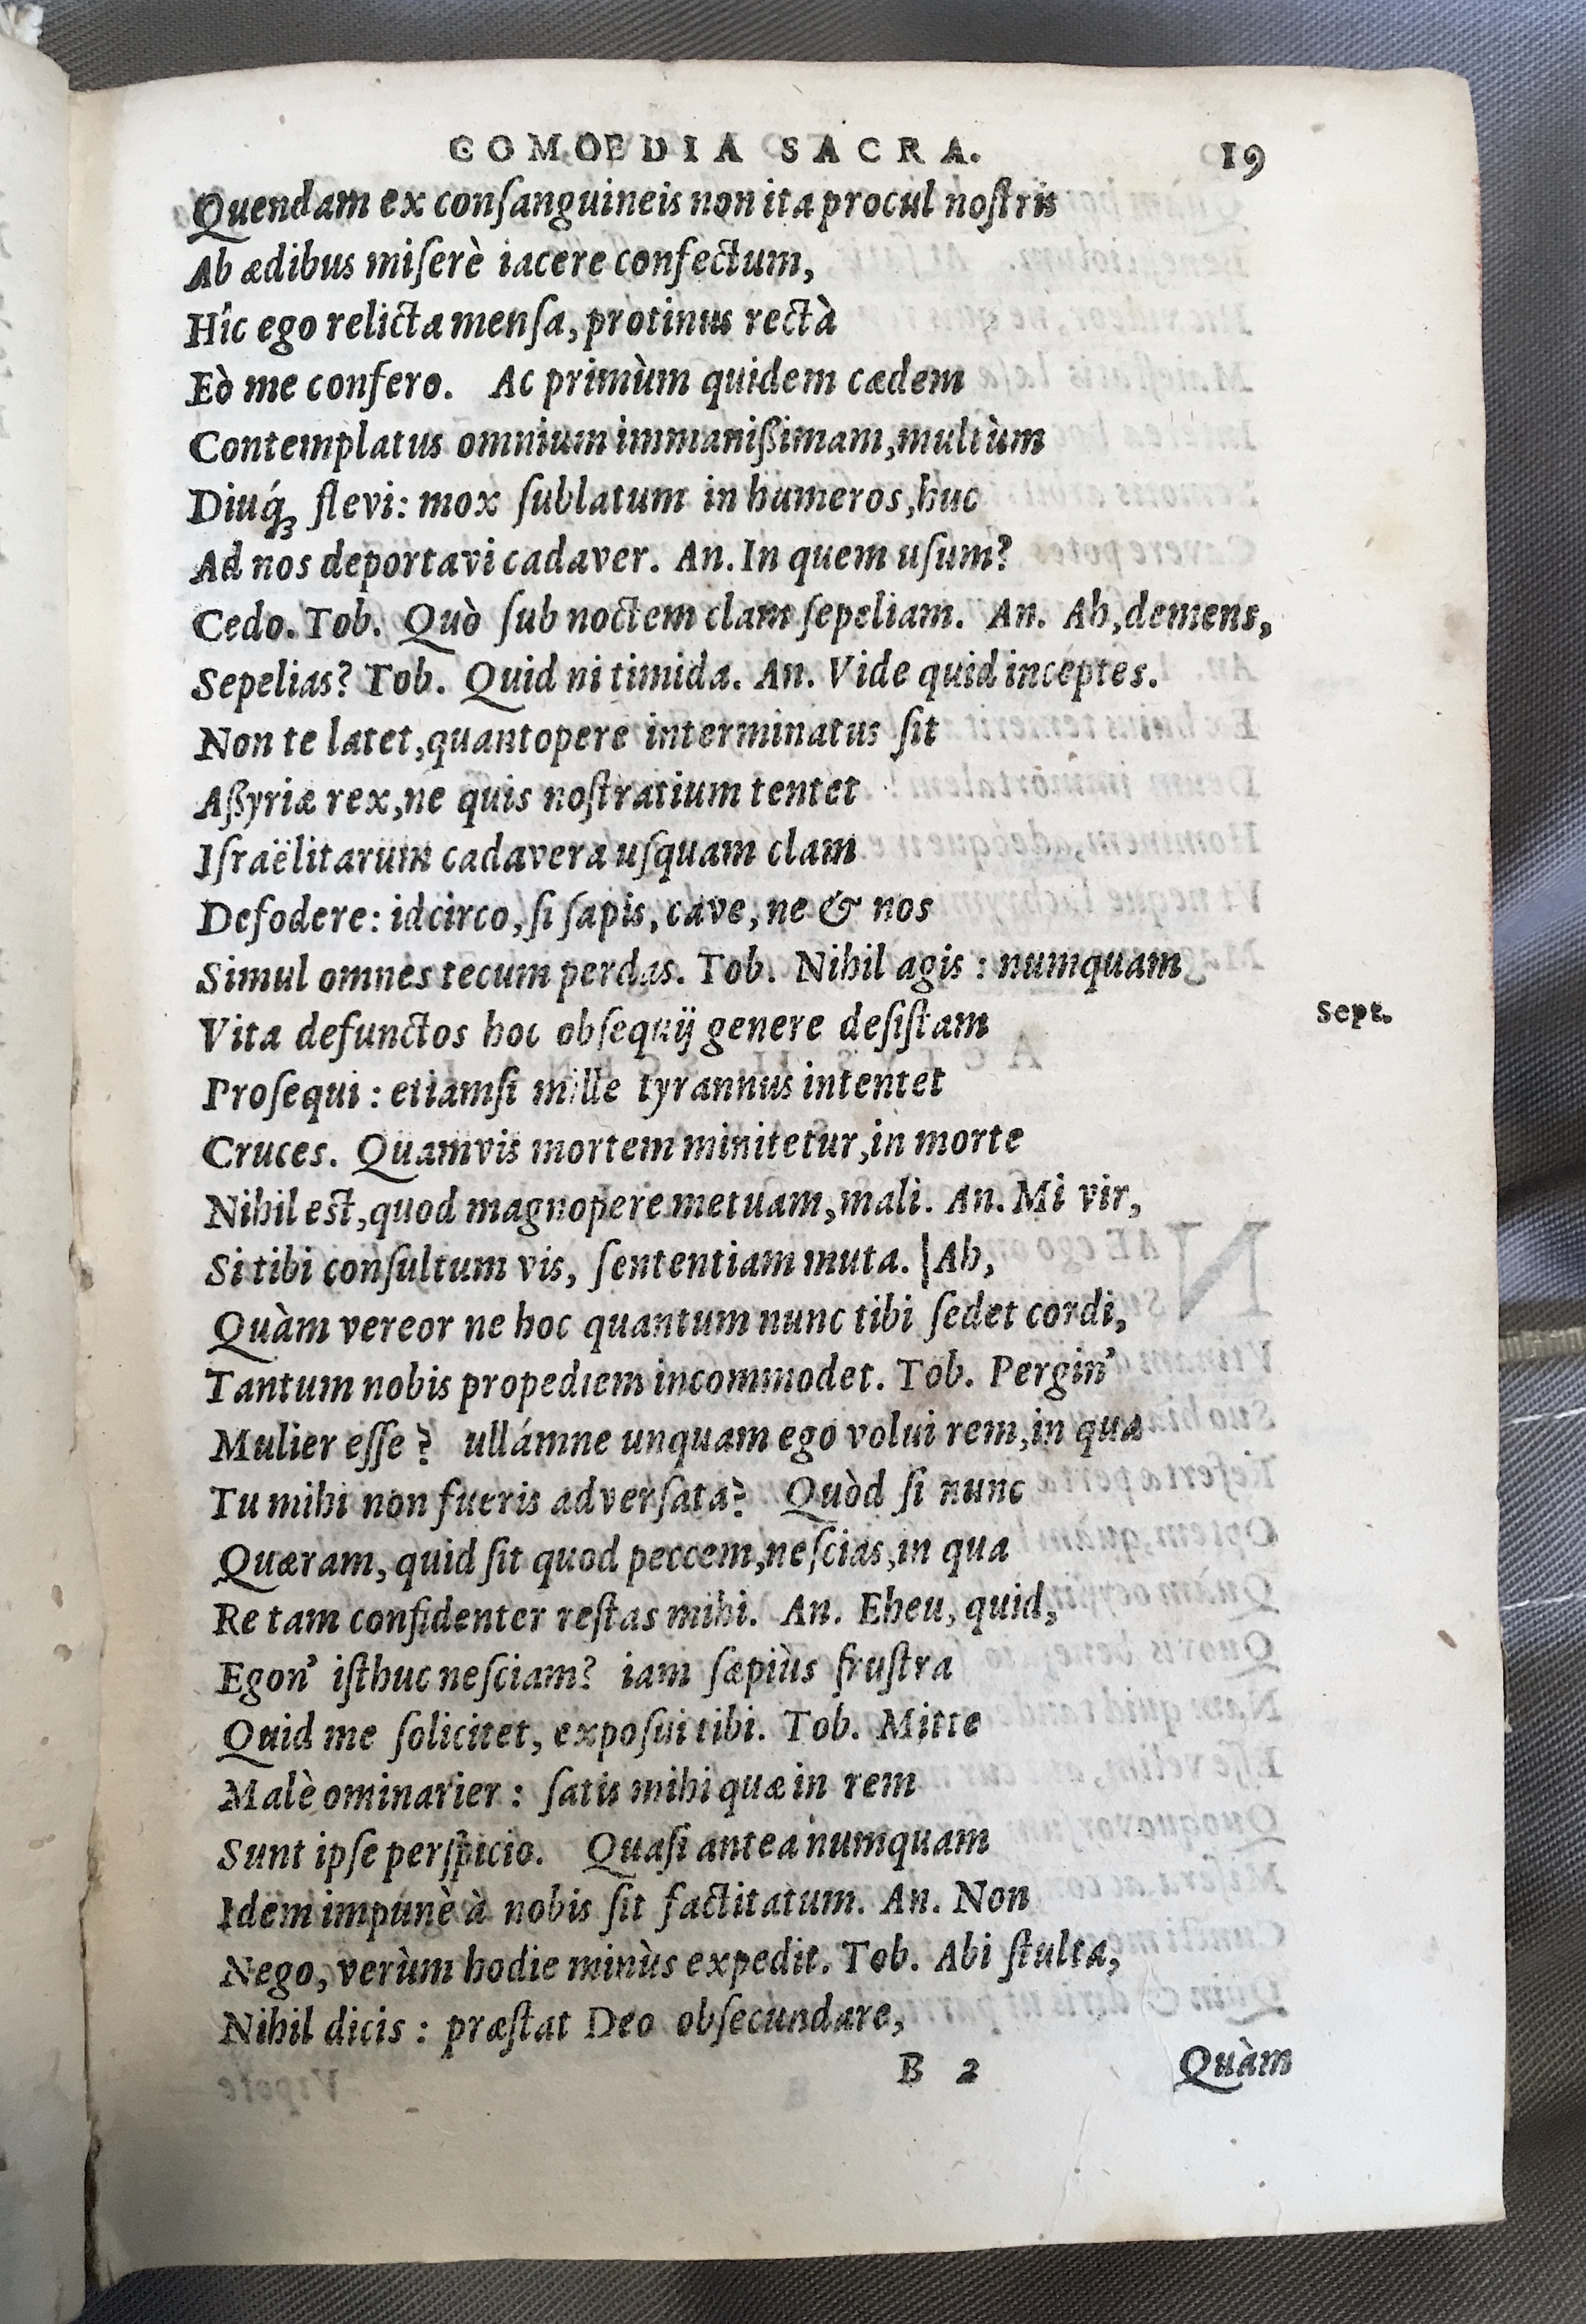 COMOEDIA SACRA. 19
Quendam ex conſanguineis non ita procul noſtris
Ab ædibus miſerè iacere confectum,
Hîc ego relicta menſa, protinus rectà
Eò me confero. Ac primùm quidem cædem
Contemplatus omnium immanißimam, multùm
Diuq́ꝫ flevi: mox ſublatum in humeros, huc
Ad nos deportavi cadaver. An. In quem uſum?
Cedo. Tob. Quò ſub noctem clam ſepeliam. An. Ah, demens,
Sepelias? Tob. Quid ni timida. An. Vide quid inceptes.
Non te latet, quantopere interminatus ſit
Aßyriæ rex, ne quis noſtratium tentet
Iſraëlitarum cadavera uſquam clam
Defodere: idcirco, ſi ſapis, cave, ne & nos
Simul omnes tecum perdas. Tob. Nihil agis: numquam
Vita defunctos hoc obſequij genere deſiſtam
Sept.
Proſequi: etiamſi mille tyrannus intentet
Cruces. Quamvis mortem minitetur, in morte
Nihil eſt, quod magnopere metuam, mali. An. Mi vir,
Si tibi conſultum vis, ſententiam muta. | Ah,
Quàm vereor ne hoc quantum nunc tibi ſedet cordi,
Tantum nobis propediem incommodet. Tob. Pergin'
Mulier eſſe? ullámne unquam ego volui rem, in qua
Tu mihi non fueris adverſata? Quòd ſi nunc
Quæram, quid ſit quod peccem, neſcias, in qua
Re tam confidenter reſtas mihi. An. Eheu, quid,
Egon' iſthuc neſciam? iam ſæpiùs fruſtra
Quid me ſolicitet, expoſui tibi. Tob. Mitte
Malè ominarier: ſatis mihi quæ in rem
Sunt ipſe perſpicio. Quaſi antea numquam
Idem impunè à nobis ſit factitatum. An. Non
Nego, verùm hodie minùs expedit. Tob. Abi ſtulta,
Nihil dicis: præſtat Deo obſecundare,
B 2 Quàm